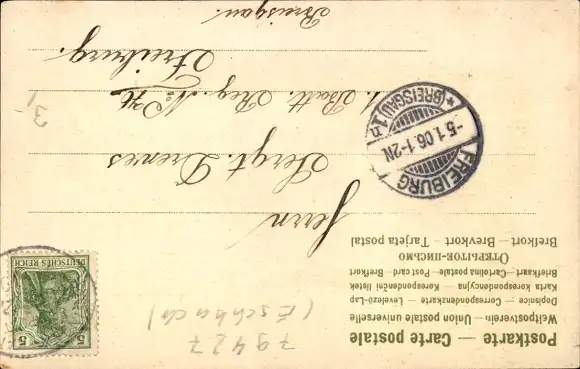 Postkarte — Carte postale
Weltpostverein — Union postale universelle
Dopisnice — Correspondenzkarte — Levelező-Lap
Karta korespondencyjna — Korespondenční lístek
Briefkaart — Cartolina postale — Post card — Brefkort
ОТКРЫТОЕ ПИСЬМО
Brefkort — Brevkort — Tarjeta postal
79427
(Eschbach)
5 5
DEUTSCHES REICH
FREIBURG
-5.1.06.1-2N.
*(BREISGAU)1n
Herrn
Sergt. Drenes
1. Batt. Reg. No
Freiburg.
Breisgau.
3,-